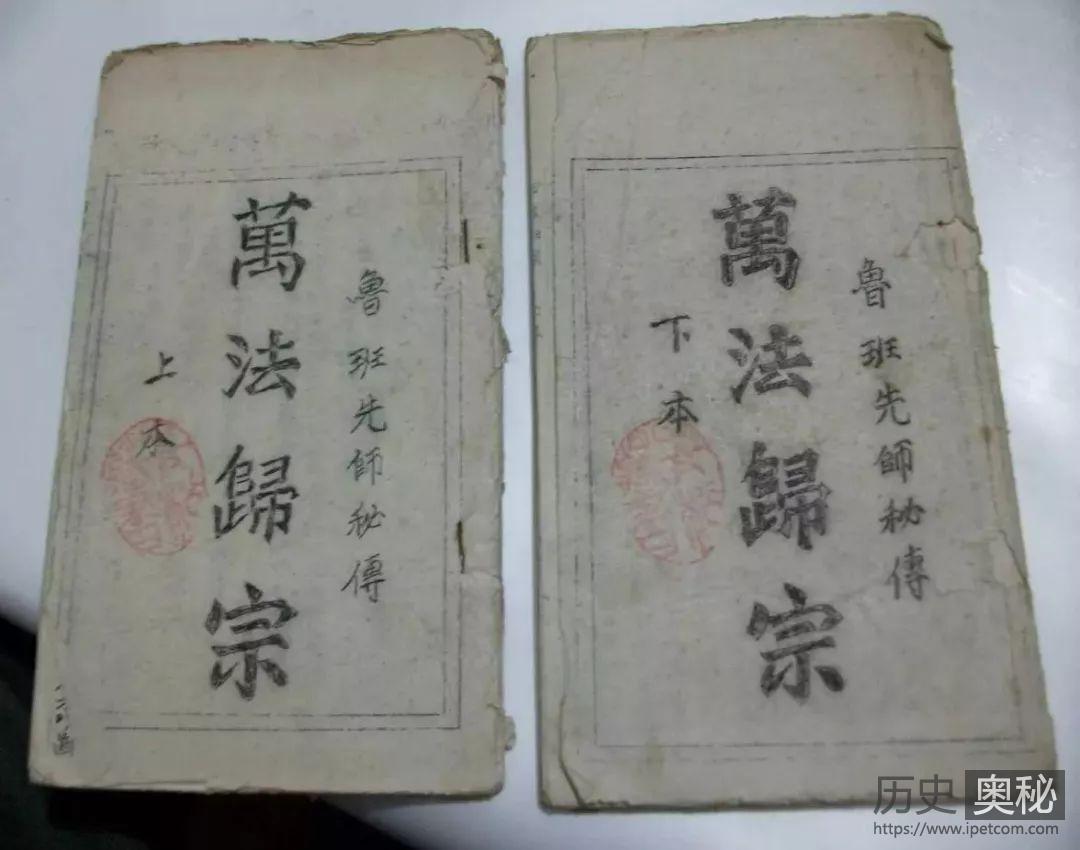 魯班先師秘傳
萬法歸宗
上本
魯班先師秘傳
萬法歸宗
下本
历史奥秘
https://www.ipetcom.com